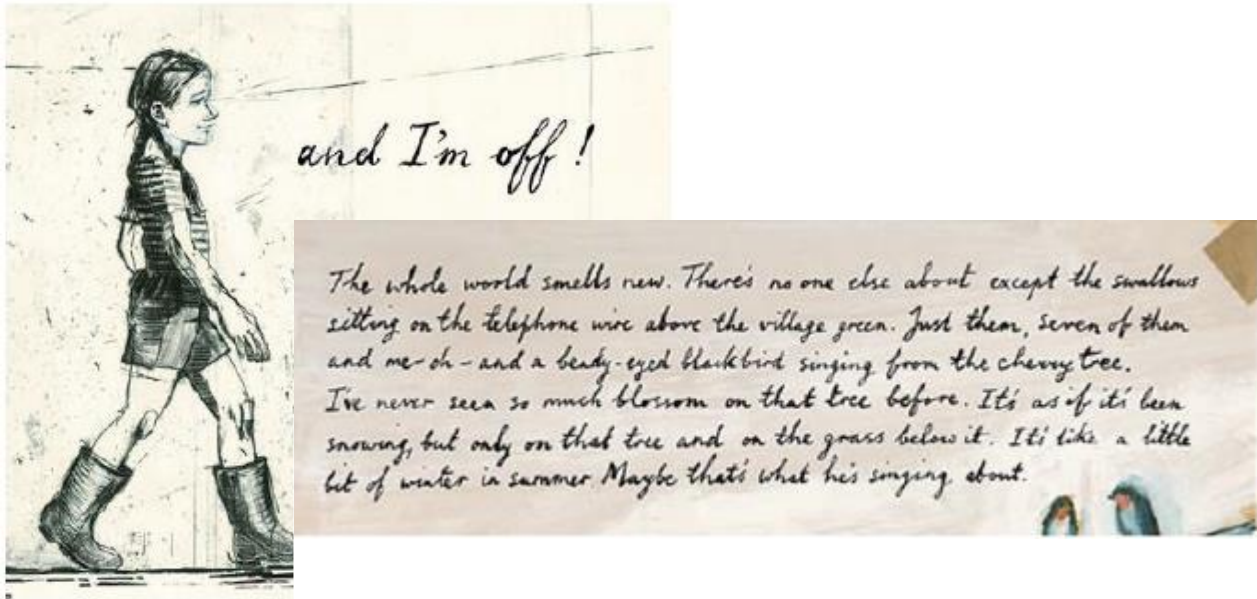 and I'm off!
The whole world smells new. There's no one else about except the swallows
sitting on the telephone wire above the village green. Just them, seven of them
and me-oh-and a beady-eyed blackbird singing from the cherry tree.
I've never seen so much blossom on that tree before. It's as if it's been
snowing, but only on that tree and on the grass below it. It's like a little
bit of winter in summer. Maybe that's what he's singing about.